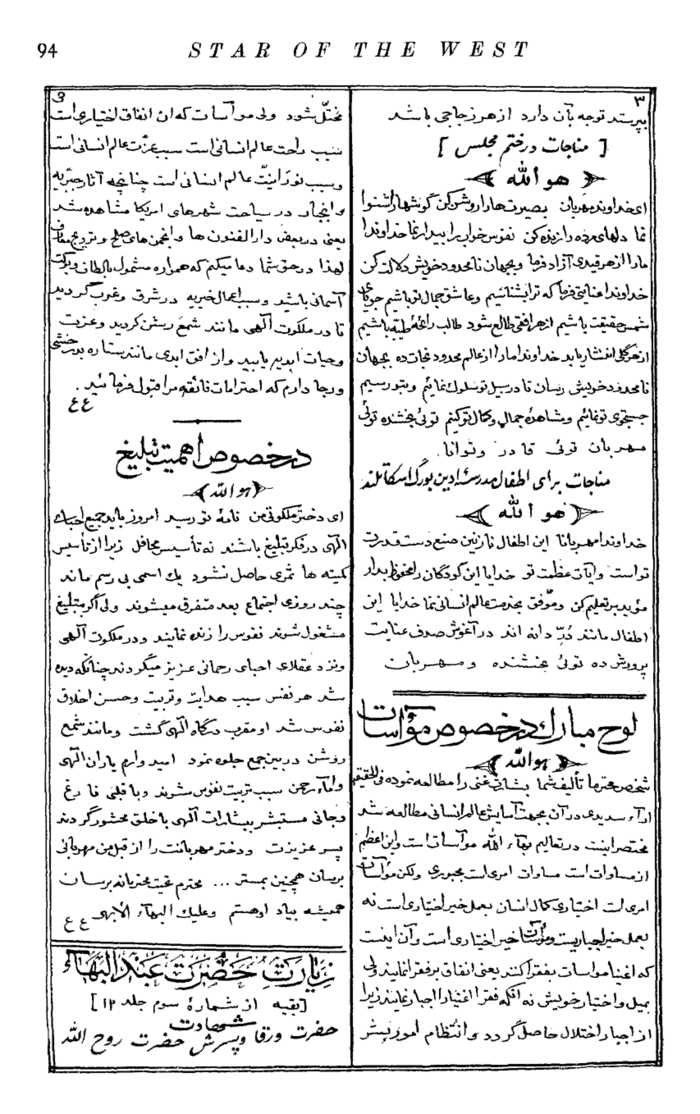 94
STAR OF THE WEST
۳
بپرستد توجه بآن دارد از هر زجاجی باشد
[ مناجات در ختم مجلس ]
هو الله
ای خداوند مهربان بصیرتها را روشن کن گوشها را شنوا
نما دلهای مرده را زنده کن نفوس خواب را بیدار نما خداوندا
ما را از هر قیدی آزاد فرما و بجهان نامحدود خویش دلالت کن
خداوندا عنایتی فرما که ترا بشناسیم و عاشق جمال تو باشیم جویای
شمس حقیقت باشیم از هر افقی طالع شود طالب رائحهٔ طیبه باشیم
از هر گلی انتشار یابد خداوندا ما را از عالم محدود نجات ده بجهان
نامحدود خویش رسان تا در سبیل تو سلوک نمائیم و بتو رسیم
جستجوی تو نمائیم و مشاهدهٔ جمال و کمال تو کنیم توئی بخشنده توئی
مهربان توئی قادر و توانا
مناجات برای اطفال مدرسهٔ ادین بورگ اسکاتلند
هو الله
خداوند مهربانا این اطفال نازنین صنع دست قدرت
تو است و آیات عظمت تو خدایا این کودکان را محفوظ بدار
مؤید بر تعلیم کن و موفق بخدمت عالم انسانی نما خدایا این
اطفال مانند دُرّ دانه اند در آغوش صدف عنایت
پرورش ده توئی بخشنده و مهربان
لوح مبارک در خصوص مؤاسات
هو الله
شخص محترما تألیف شما بشأنی غنی را مطالعه نموده فی الحقیقه
آراء سدیدی در آن بجهت آسایش عالم انسانی مطالعه شد
مختصر اینست در تعالیم بهاء الله مؤاسات است و این اعظم
از مساوات است مساوات امریست مجبوری ولکن مؤاسات
امریست اختیاری کمال انسان بعمل خیر اختیاری است نه
بعمل خیر اجباریست و مؤاسات خیر اختیاری است و آن اینست
که اغنیا مواسات بفقرا کنند یعنی انفاق بر فقرا نمایند ولی
بمیل و اختیار خویش نه آنکه فقرا اغنیا را اجبار نمایند زیرا
از اجبار اختلال حاصل گردد و انتظام امور بشر
مختلّ شود ولی مواسات که آن انفاق اختیاری است
سبب راحت عالم انسانی است سبب عزّت عالم انسانی است
و سبب نورانیت عالم انسانی است چنانچه آثار خیریه
در سیاحت شهرهای امریکا مشاهده شد
یعنی در بعض دار الفنون ها و انجمن های صلح و ترویج معارف
لهذا در حق شما دعا میکنم که همواره مشمول بالطاف و برکت
آسمانی باشید و سبب اعمال خیریه در شرق و غرب گردید
تا در ملکوت الٰهی مانند شمع روشن گردید و عزت
و حیات ابدیه یابید و از افق ابدی مانند ستاره بدرخشی
و رجا دارم که احترامات فائقهٔ مرا قبول فرمائید.
ع ع
در خصوص اهمیت تبلیغ
هو الله
ای دختر ملکوتی من نامهٔ تو رسید امروز باید جمیع احبای
الٰهی در فکر تبلیغ باشند نه تأسیس محافل زیرا از تأسیس
کمیته ها ثمری حاصل نشود یک اسمی بی رسم ماند
چند روزی اجتماع بعد متفرق میشوند ولی اگر بتبلیغ
مشغول شوند نفوس را زنده نمایند و در ملکوت الٰهی
و نزد عقلای احبای رحمانی عزیز میگردند چنانکه دیده
شد هر نفس سبب هدایت و تربیت و حسن اخلاق
نفوس شد او مقرب درگاه الٰهی گشت و مانند شمع
روشن در بین جمع جلوه نمود امیدوارم یاران الٰهی
و اماء رحمن سبب تربیت نفوس شوند و با قلبی فارغ
و جانی مستبشر ببشارات الٰهی با خلق محشور گردند
پسر عزیزت و دختر مهربانت را از قبل من مهربانی
برسان همچنین بمستر ... محترم تحیت محترمانه برسان
همیشه بیاد او هستم و علیک البهاء الأبهی
ع ع
زیارت حضرت عبد البهاء
[بقیه از شمارهٔ سوم جلد ۱۲]
شهادت
حضرت ورقا و پسرش حضرت روح الله